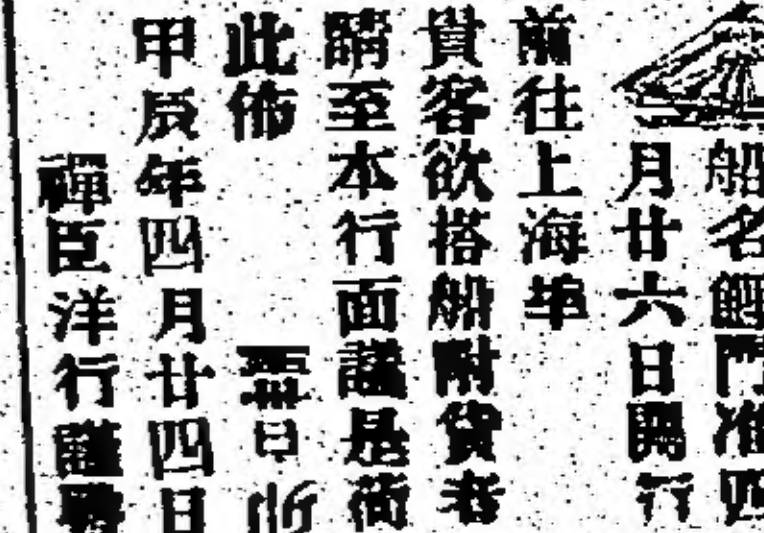 船名鯉門准四
月廿六日開行
前往上海埠
貴客欲搭船附貨者
請至本行面議是荷
此佈
日
甲辰年四月廿四日
禪臣洋行謹